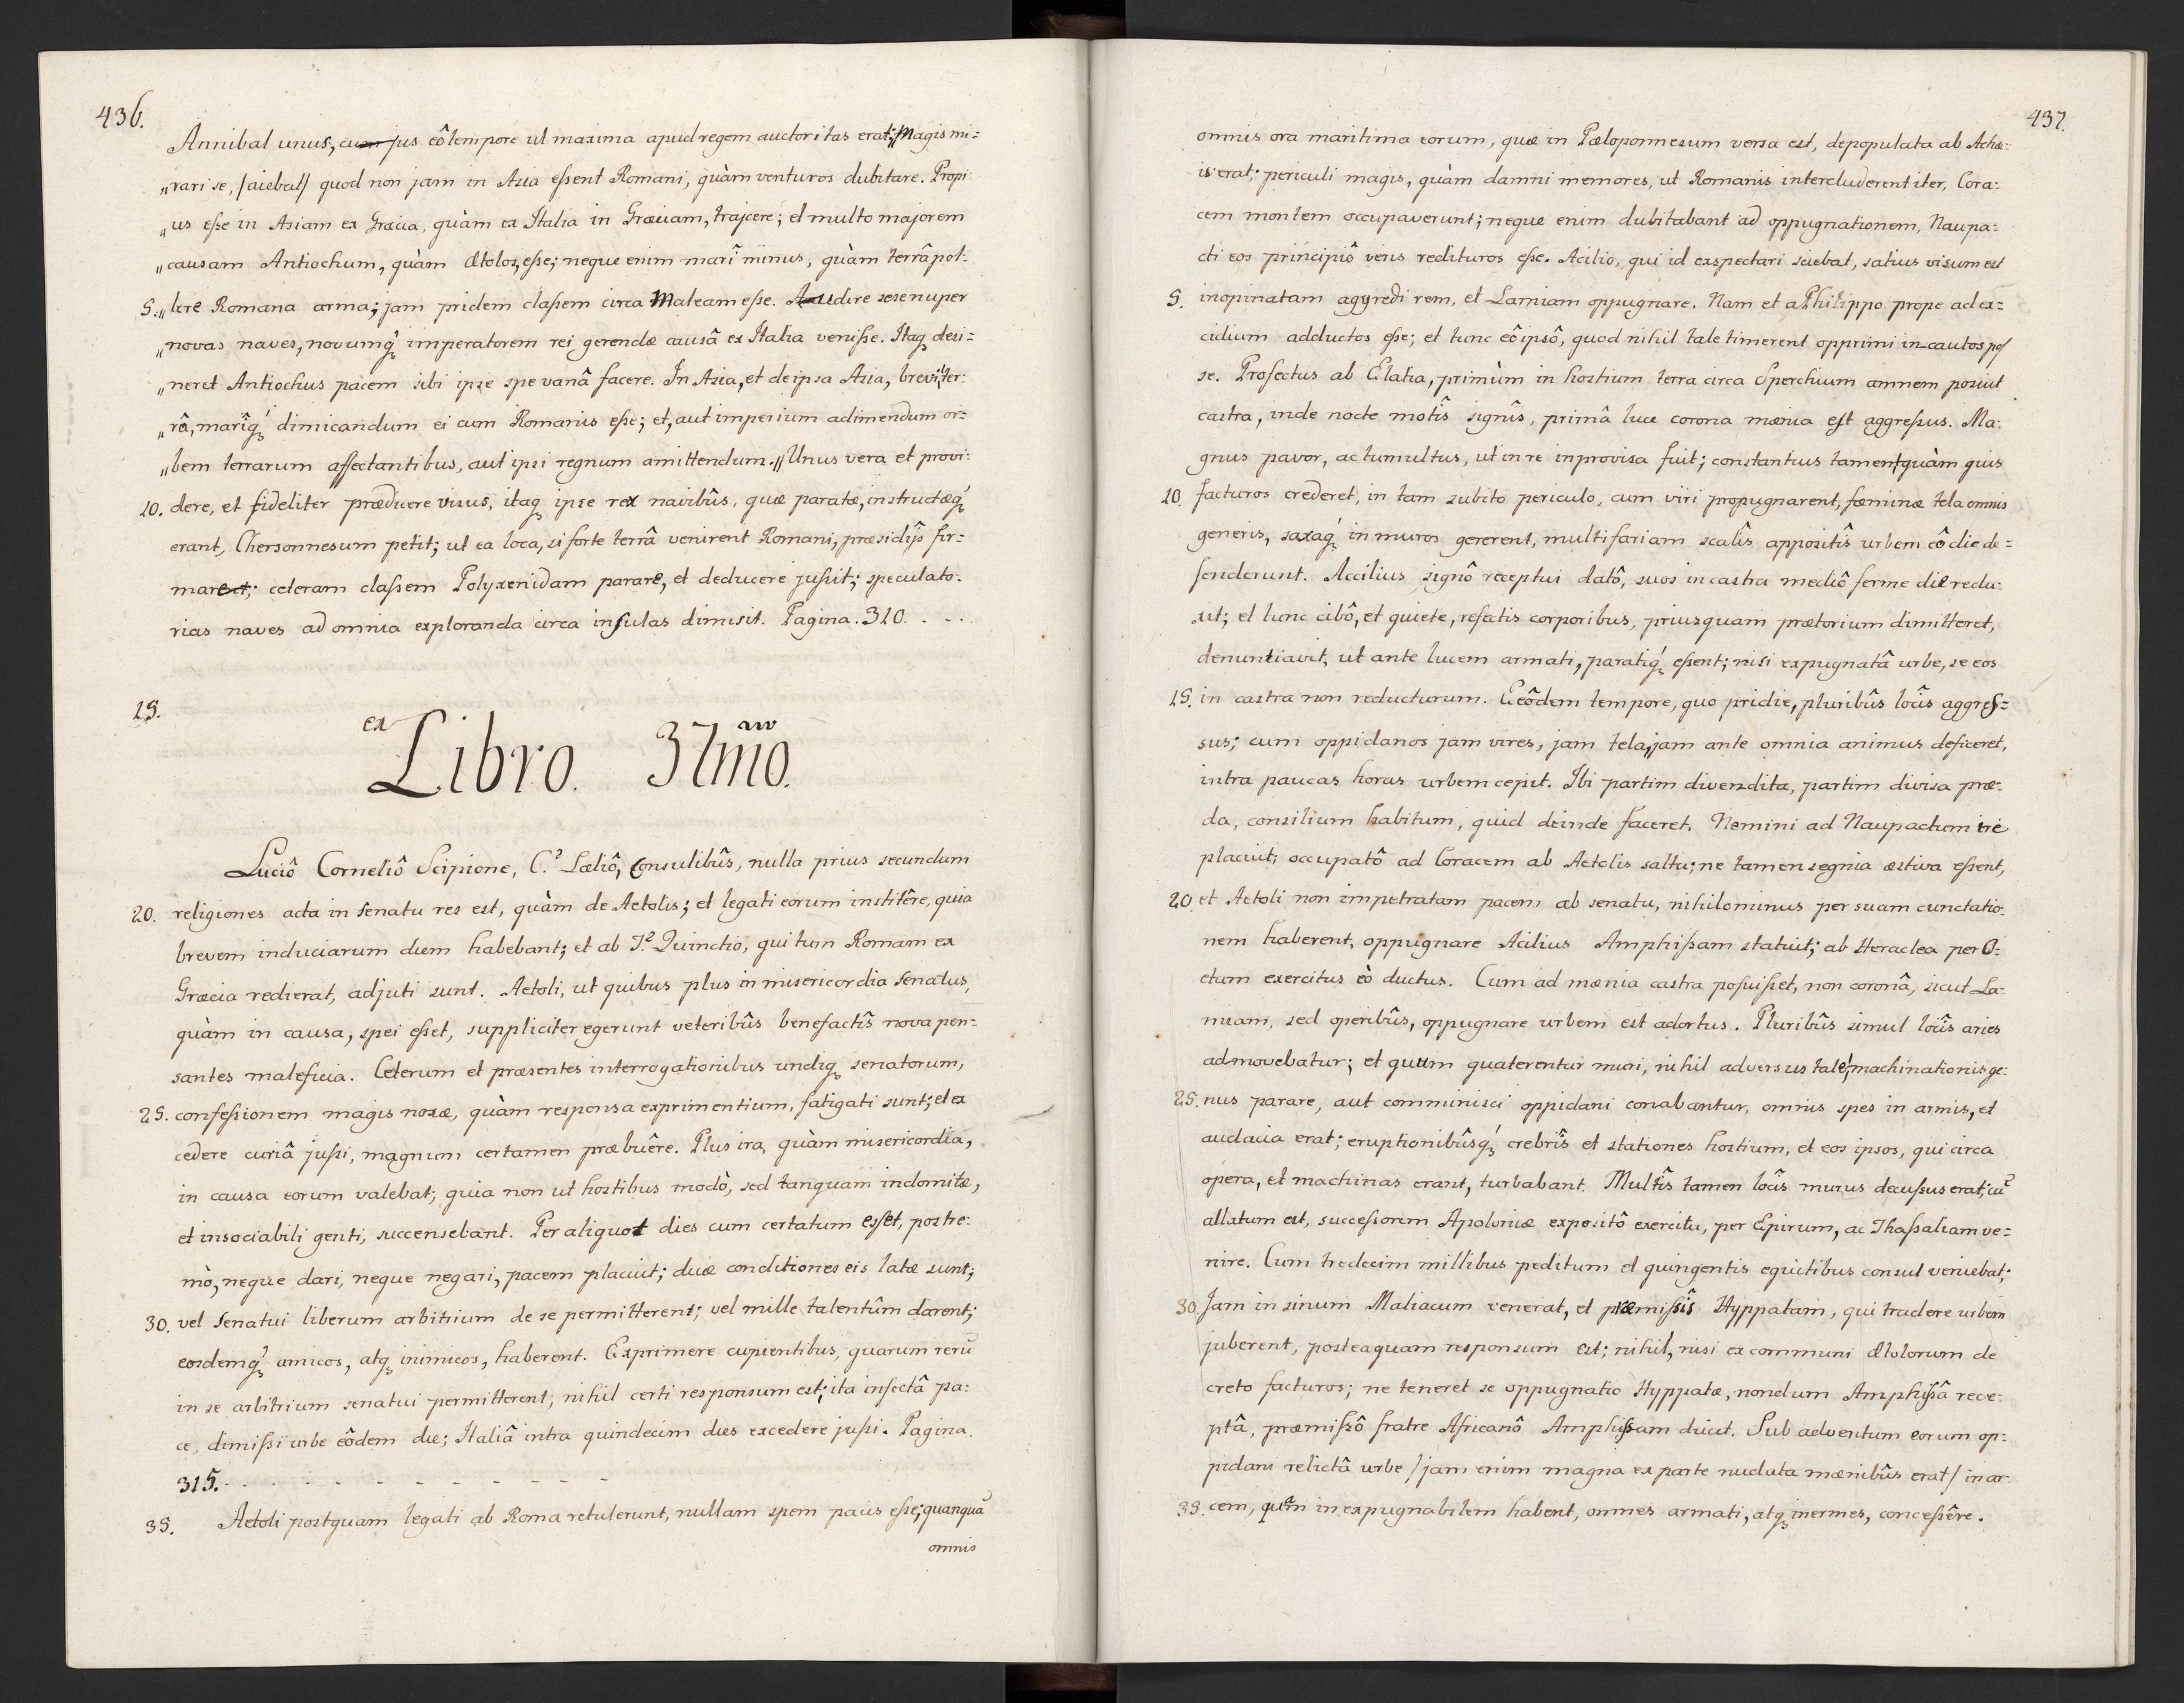 436.
Annibal unus, cujus eô tempore ut maxima apud regem auctoritas erat; „Magis mi=
„rari se, /aiebat/ quod non jam in Asia eſsent Romani, quàm venturos dubitare. Propi
„us eſse in Asiam ex Græcia, quàm ex Italia in Græciam, trajcere; et multo majorem
„causam Antiochum, quàm Ætolos, eſse; neque enim marî minus, quàm terrâ pol=
5. „lere Romana arma; jam pridem claſsem circa Maleam eſse. Audire sese nuper
„novas naves, novumq́ꝫ imperatorem rei gerendæ causâ ex Italia veniſse. Itaqꝫ desi=
„neret Antiochus pacem sibi ipse spe vanâ facere. In Asia, et de ipsa Asia, brevi, ter=
„râ, marîq́ꝫ dimicandum ei cum Romanis eſse; et, aut imperium adimendum or=
„bem terrarum affectantibus, aut ipsi regnum amittendum. „Unus vera et provi=
10. dere, et fideliter prædicere visus, itaqꝫ ipse rex navibûs, quæ paratæ, instructæq́ꝫ
erant, Chersonnesum petit; ut ea loca, si forte terrâ venirent Romani, præsidijs fir=
maret; ceteram claſsem Polyxenidam parare, et deducere juſsit; speculato=
rias naves ad omnia exploranda circa insulas dimisit. Pagina. 310. . . .
15.
ex Libro. 37mo.
Luciô Corneliô Scipione, C.º Læliô, Consulibûs, nulla prius secundum
20. religiones acta in senatu res est, quàm de Aetolis; et legati eorum institêre, quia
brevem induciarum diem habebant; et ab T.º Quinctio, qui tum Romam ex
Græcia redierat, adjuti sunt. Aetoli, ut quibus plus in misericordia senatus,
quàm in causa, spei eſset, suppliciter egerunt veteribûs benefactîs nova pen=
santes maleficia. Ceterum et præsentes interrogationibus undiqꝫ senatorum,
25. confeſsionem magis noxæ, quàm responsa exprimentium, fatigati sunt; et ex
cedere curiâ juſsi, magnum certamen præbuêre. Plus ira, quàm misericordia,
in causa eorum valebat; quia non ut hostibus modò, sed tanquam indomitæ,
et insociabili genti, succensebant. Per aliquot dies cum certatum esset, postre=
mò, neque dari, neque negari, pacem placuit; duæ conditiones eis latæ sunt;
30. vel senatui liberum arbitrium de se permitterent; vel mille talentûm darent;
eosdemq́ꝫ amicos, atqꝫ inimicos, haberent. Exprimere cupientibus, quarum rerū
in se arbitrium senatui permitterent; nihil certi responsum est; ita infectâ pa=
ce, dimiſsi urbe eôdem die; Italiâ intra quindecim dies excedere juſsi. Pagina.
315. - - - - - - - - - -
35. Aetoli postquam legati ab Roma retulerunt, nullam spem pacis eſse; quanquā
omnis
437.
omnis ora maritima eorum, quæ in Pæloponnesum versa est, depopulata ab Achæ=
is erat; periculi magis, quàm damni memores, ut Romanis intercluderent iter, Cora=
cem montem occupaverunt; neque enim dubitabant ad oppugnationem, Naupa=
cti eos principiô veris redituros eſse. Acilio, qui id exspectari sciebat, satius visum est
5. inopinatam aggredi rem, et Lamiam oppugnare. Nam et a Philippo prope ad ex=
cidium adductos eſse; et tunc eô ipsô, quod nihil tale timerent opprimi incautos poſ
se. Profectus ab Elatia, primùm in hostium terra circa Sperchium amnem posuit
castra, inde nocte motîs signîs, primâ luce corona mœnia est aggreſsus. Ma=
gnus pavor, ac tumultus, ut in re inprovisa fuit; constantius tamen, quàm quis
10. facturos crederet, in tam subito periculo, cum viri propugnarent, fœminæ tela omnis
generis, saxaq́ꝫ in muros gererent, multifariam scalîs appositîs urbem eô die de=
fenderunt. Accilius signô receptui datô, suos in castra mediô ferme die redu=
xit; et tunc cibô, et quiete, refectis corporibus, priusquam prætorium dimitteret,
denuntiavit, ut ante lucem armati, paratiq́ꝫ eſsent; nisi expugnatâ urbe, se eos
15. in castra non reducturum. Eeôdem tempore, quo pridie, pluribûs locîs aggres=
sus; cum oppidanos jam vires, jam tela, jam ante omnia animus deficeret,
intra paucas horas urbem cepit. Ibi partim divendita, partim divisa præ=
da, consilium habitum, quid deinde faceret. Nemini ad Naupactum ire
placuit; occupatô ad Coracem ab Aetolis saltu; ne tamen segnia æstiva eſsent,
20. et Aetoli non impetratam pacem ab senatu, nihilominus per suam cunctatio=
nem haberent, oppugnare Acilius Amphiſsam statuit; ab Heraclea per O=
etum exercitus eò ductus. Cum ad mœnia castra posuiſset, non coronâ, sicut La=
miam, sed operibûs, oppugnare urbem est adortus. Pluribûs simul locîs aries
admovebatur; et quum quaterentur muri, nihil adversus tale, machinationis ge=
25. nus parare, aut comminisci oppidani conabantur, omnis spes in armis, et
audacia erat; eruptionibûsq́ꝫ crebrîs et stationes hostium, et eos ipsos, qui circa
opera, et machinas erant, turbabant. Multîs tamen locîs murus decuſsus erat; cū
allatum est, succeſsorem Apoloniæ expositô exercitu, per Epirum, ac Thaſsaliam ve=
nire. Cum tredecim millibus peditum et quingentis equitibus consul veniebat;
30. Jam in sinum Maliacum venerat, et præmiſsîs Hyppatam, qui tradere urbem
juberent, posteaquam responsum est; nihil, nisi ex communi Ætolorum de
creto facturos; ne teneret se oppugnatio Hyppatæ, nondum Amphiſsâ rece=
ptâ, præmiſsô fratre Africanô Amphiſsam ducit. Sub adventum eorum op=
pidani relictâ urbe /jam enim magna ex parte nudata mœnibûs erat/ in ar=
35. cem, quam inexpugnabilem habent, omnes armati, atqꝫ inermes, conceſsêre.